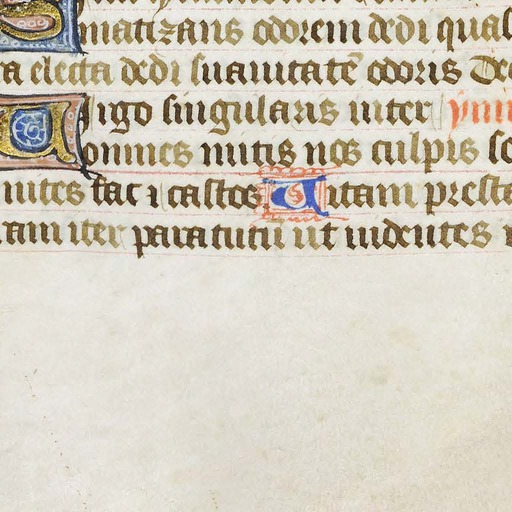 matizans odorem dedi qua
a electa dedi suauitatē odoris De
Virgo singularis inter ymn
omnes mitis nos culpis so
mites fac ⁊ castos Uitam presta
ram iter para tutū ut uidentes